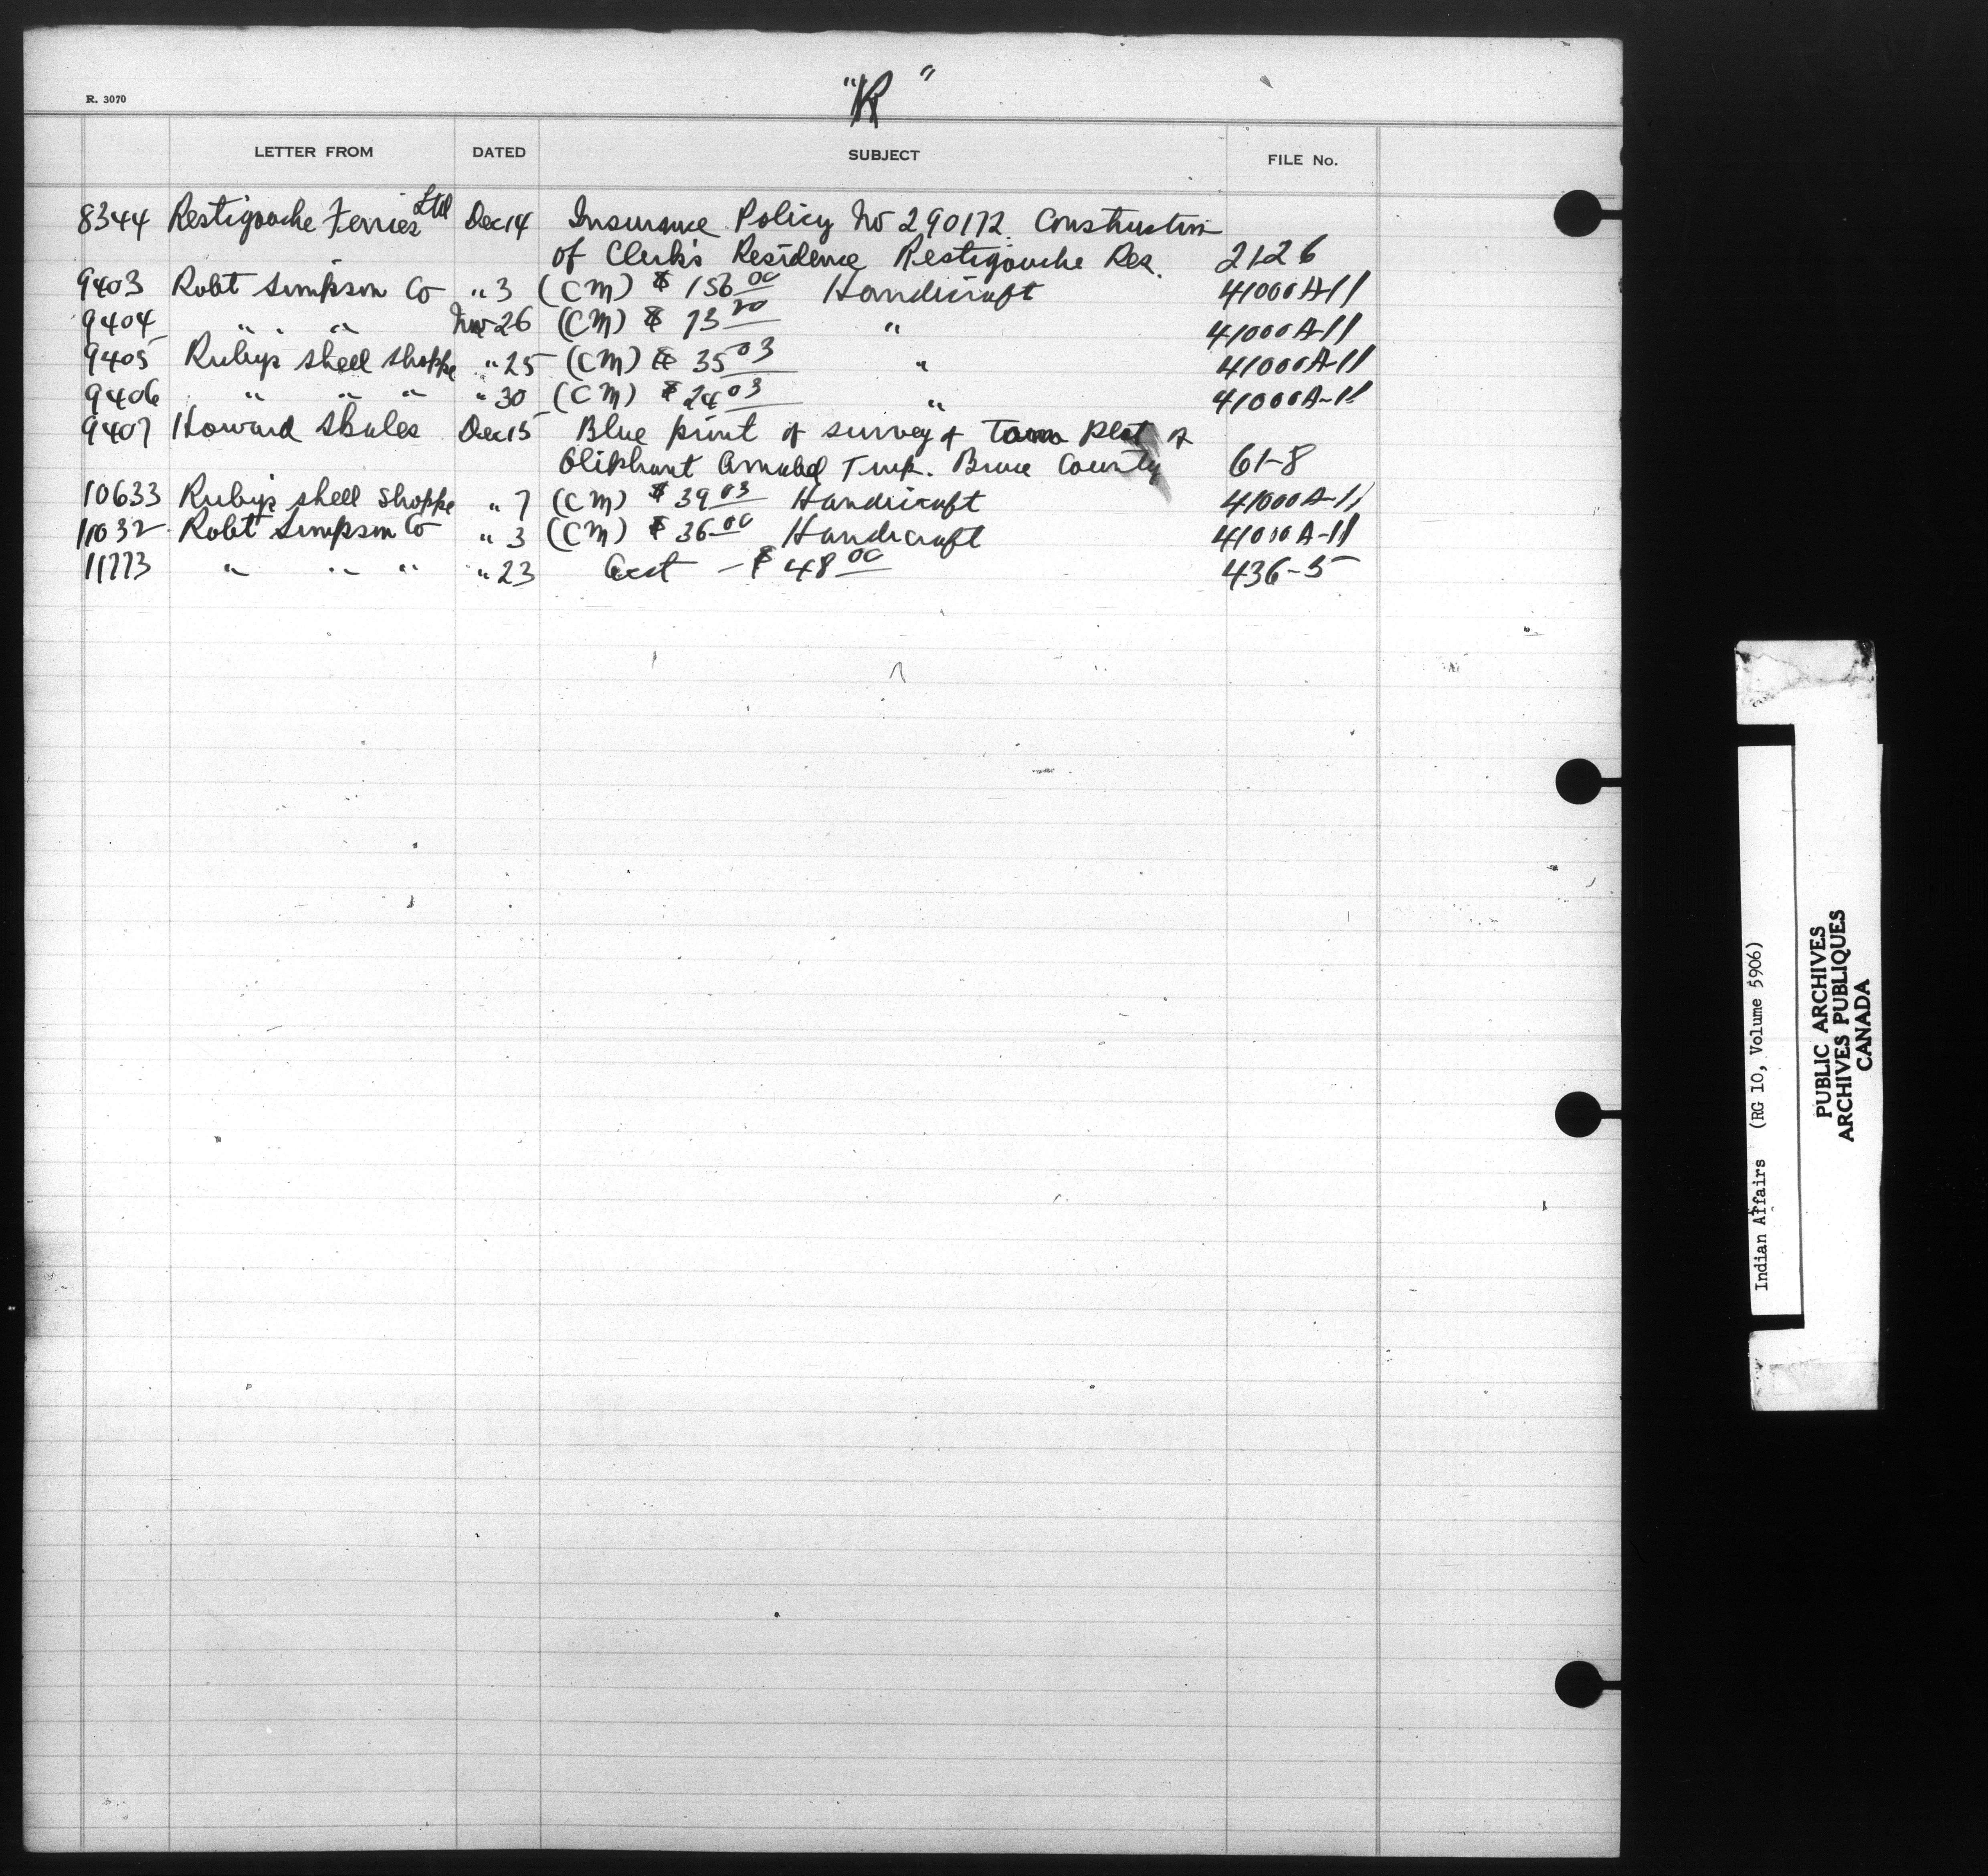 R. 3070
"R"
LETTER FROM DATED SUBJECT FILE No.
8344 Restigouche Ferries Ltd Dec 14 Insurance Policy No 290172. Construction
of Clerk's Residence Restigouche Res. 21-26
9403 Robt Simpson Co " 3 (CM) $ 156 00 Handicraft 41000A-11
9404 " " " Nov 26 (CM) $ 73 20 " 41000A-11
9405 Rubys Shell Shoppe " 25 (CM) $ 35 03 " 41000A-11
9406 " " " " 30 (CM) $ 24 03 " 41000A-11
9407 Howard Dec 15 Blue print of survey of Town Plot of
Oliphant Amabel Twp. Bruce County 61-8
10633 Ruby's Shell Shoppe " 7 (CM) $ 39 03 Handicraft 41000A-11
11032 Robt Simpson Co " 3 (CM) $ 36 00 Handicraft 41000A-11
11773 " " " " 23 Acct - $ 48 00 436-5
Indian Affairs (RG 10, Volume 5906)
PUBLIC ARCHIVES
ARCHIVES PUBLIQUES
CANADA